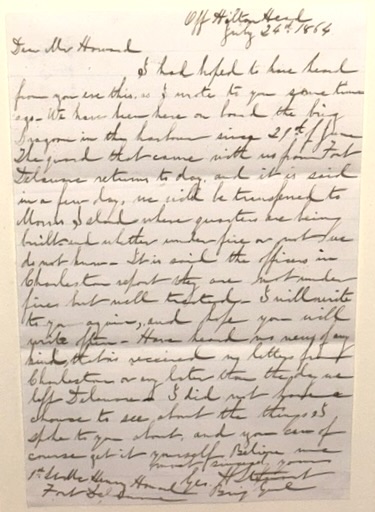 Off Hilton Head
July 24th 1864
Dear Mr Howard
I had hoped to have heard
from you ere this, as I wrote to you some time
ago - We have been here on board the brig
Dragoon in the harbour since 29th of June
The guard that came with us from Fort
Delaware returns to day, and it is said
in a few days, we will be transferred to
Morris Island where quarters are being
built - and whether under fire or not we
do not know - It is said the officers in
Charleston report they are not under
fire, but well treated - I will write
to you again, and hope you will
write often - Have heard no news of any
kind, that is received no letters from
Charleston or any later than the day we
left Delaware - I did not
chance to see about the things I
spoke to you about, and you can of
course get it yourself Believe me
most sincerely yours
Geo. H. Steuart
Brig Genl
1st Lt McHenry Howard
Fort Delaware